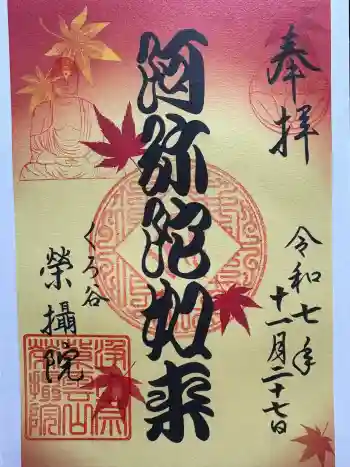 奉拝
令和七年
十一月二十七日
阿弥陀如来
くろ谷
榮攝院